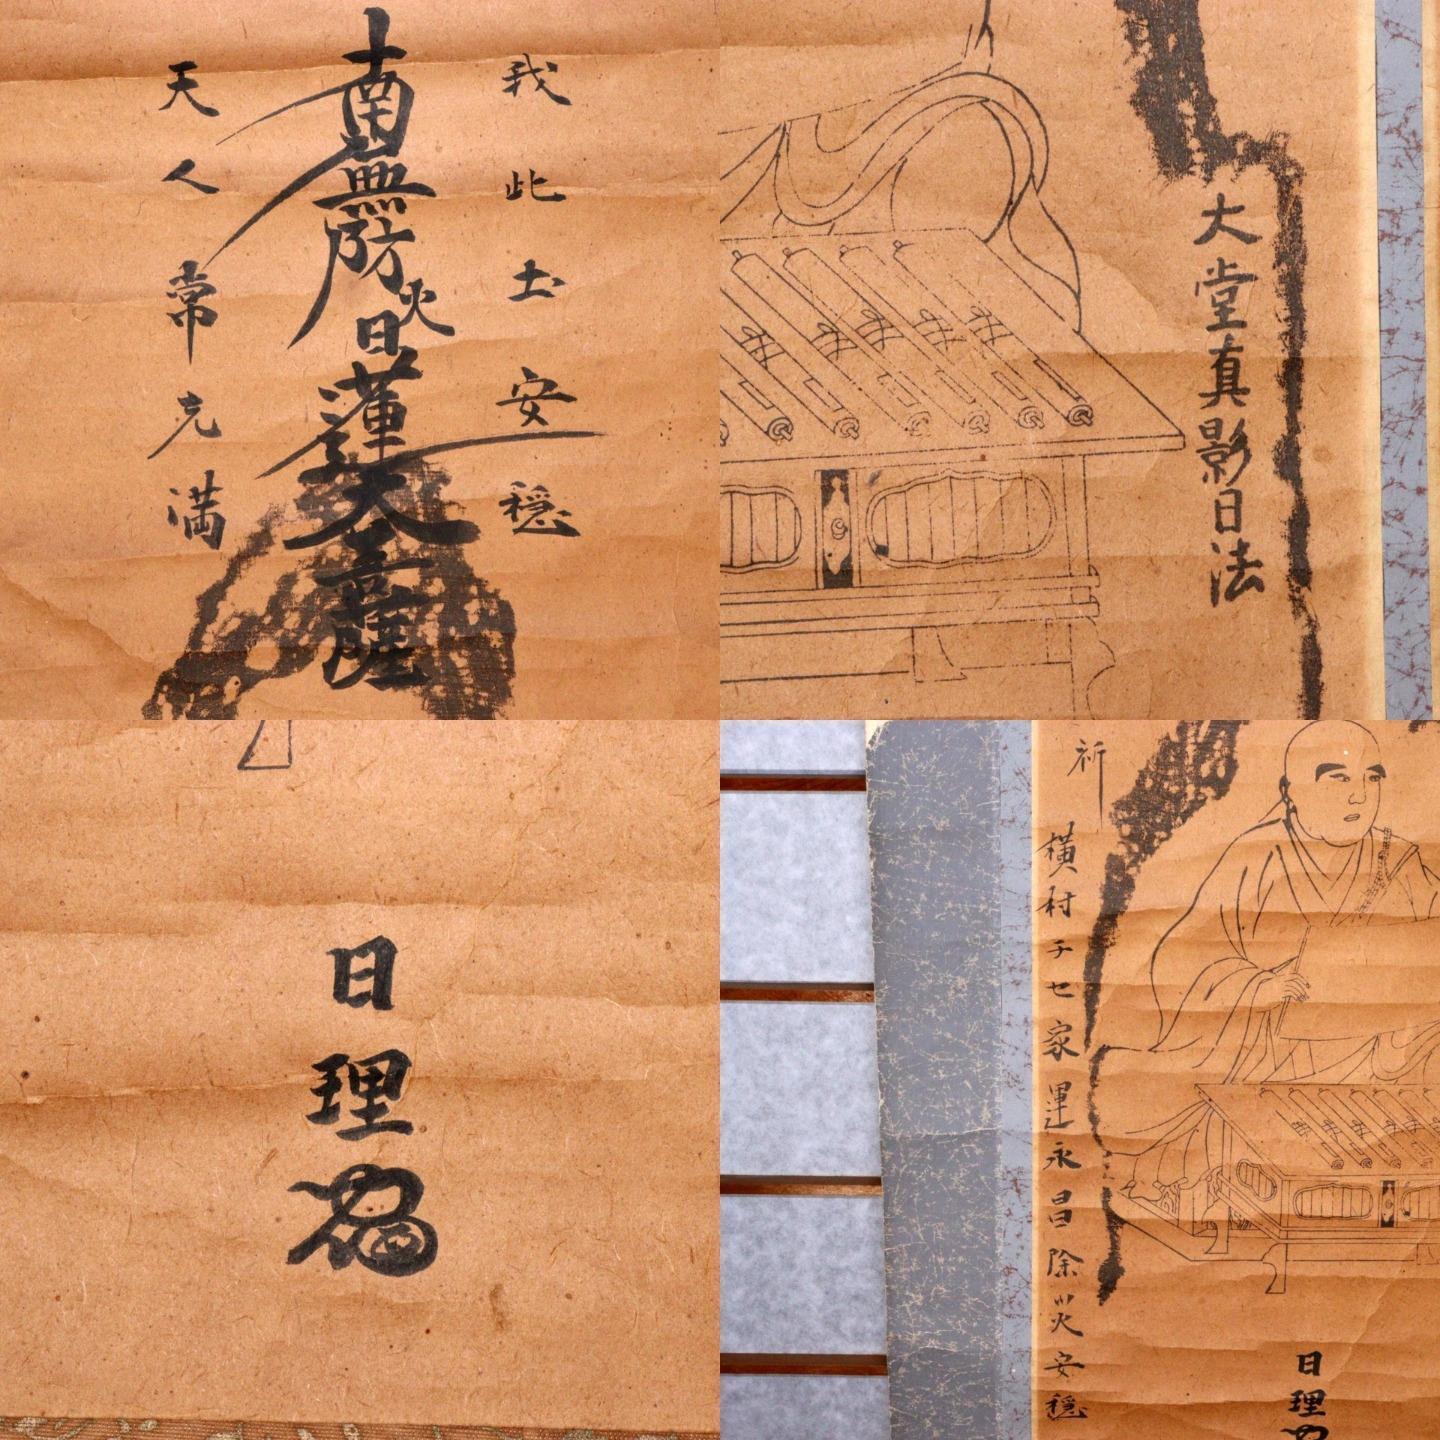 南無防火日蓮大菩薩
我此土安穏
天人常充満
大堂真影日法
日理
祈
横村チセ家運永昌除災安穏
日理